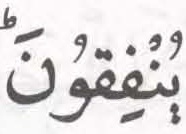 يُنْفِقُونَؕ